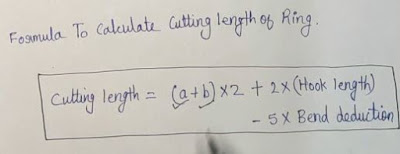 Formula To Calculate Cutting length of Ring.
Cutting length = (a+b)×2 + 2×(Hook length)
- 5 × Bend deduction